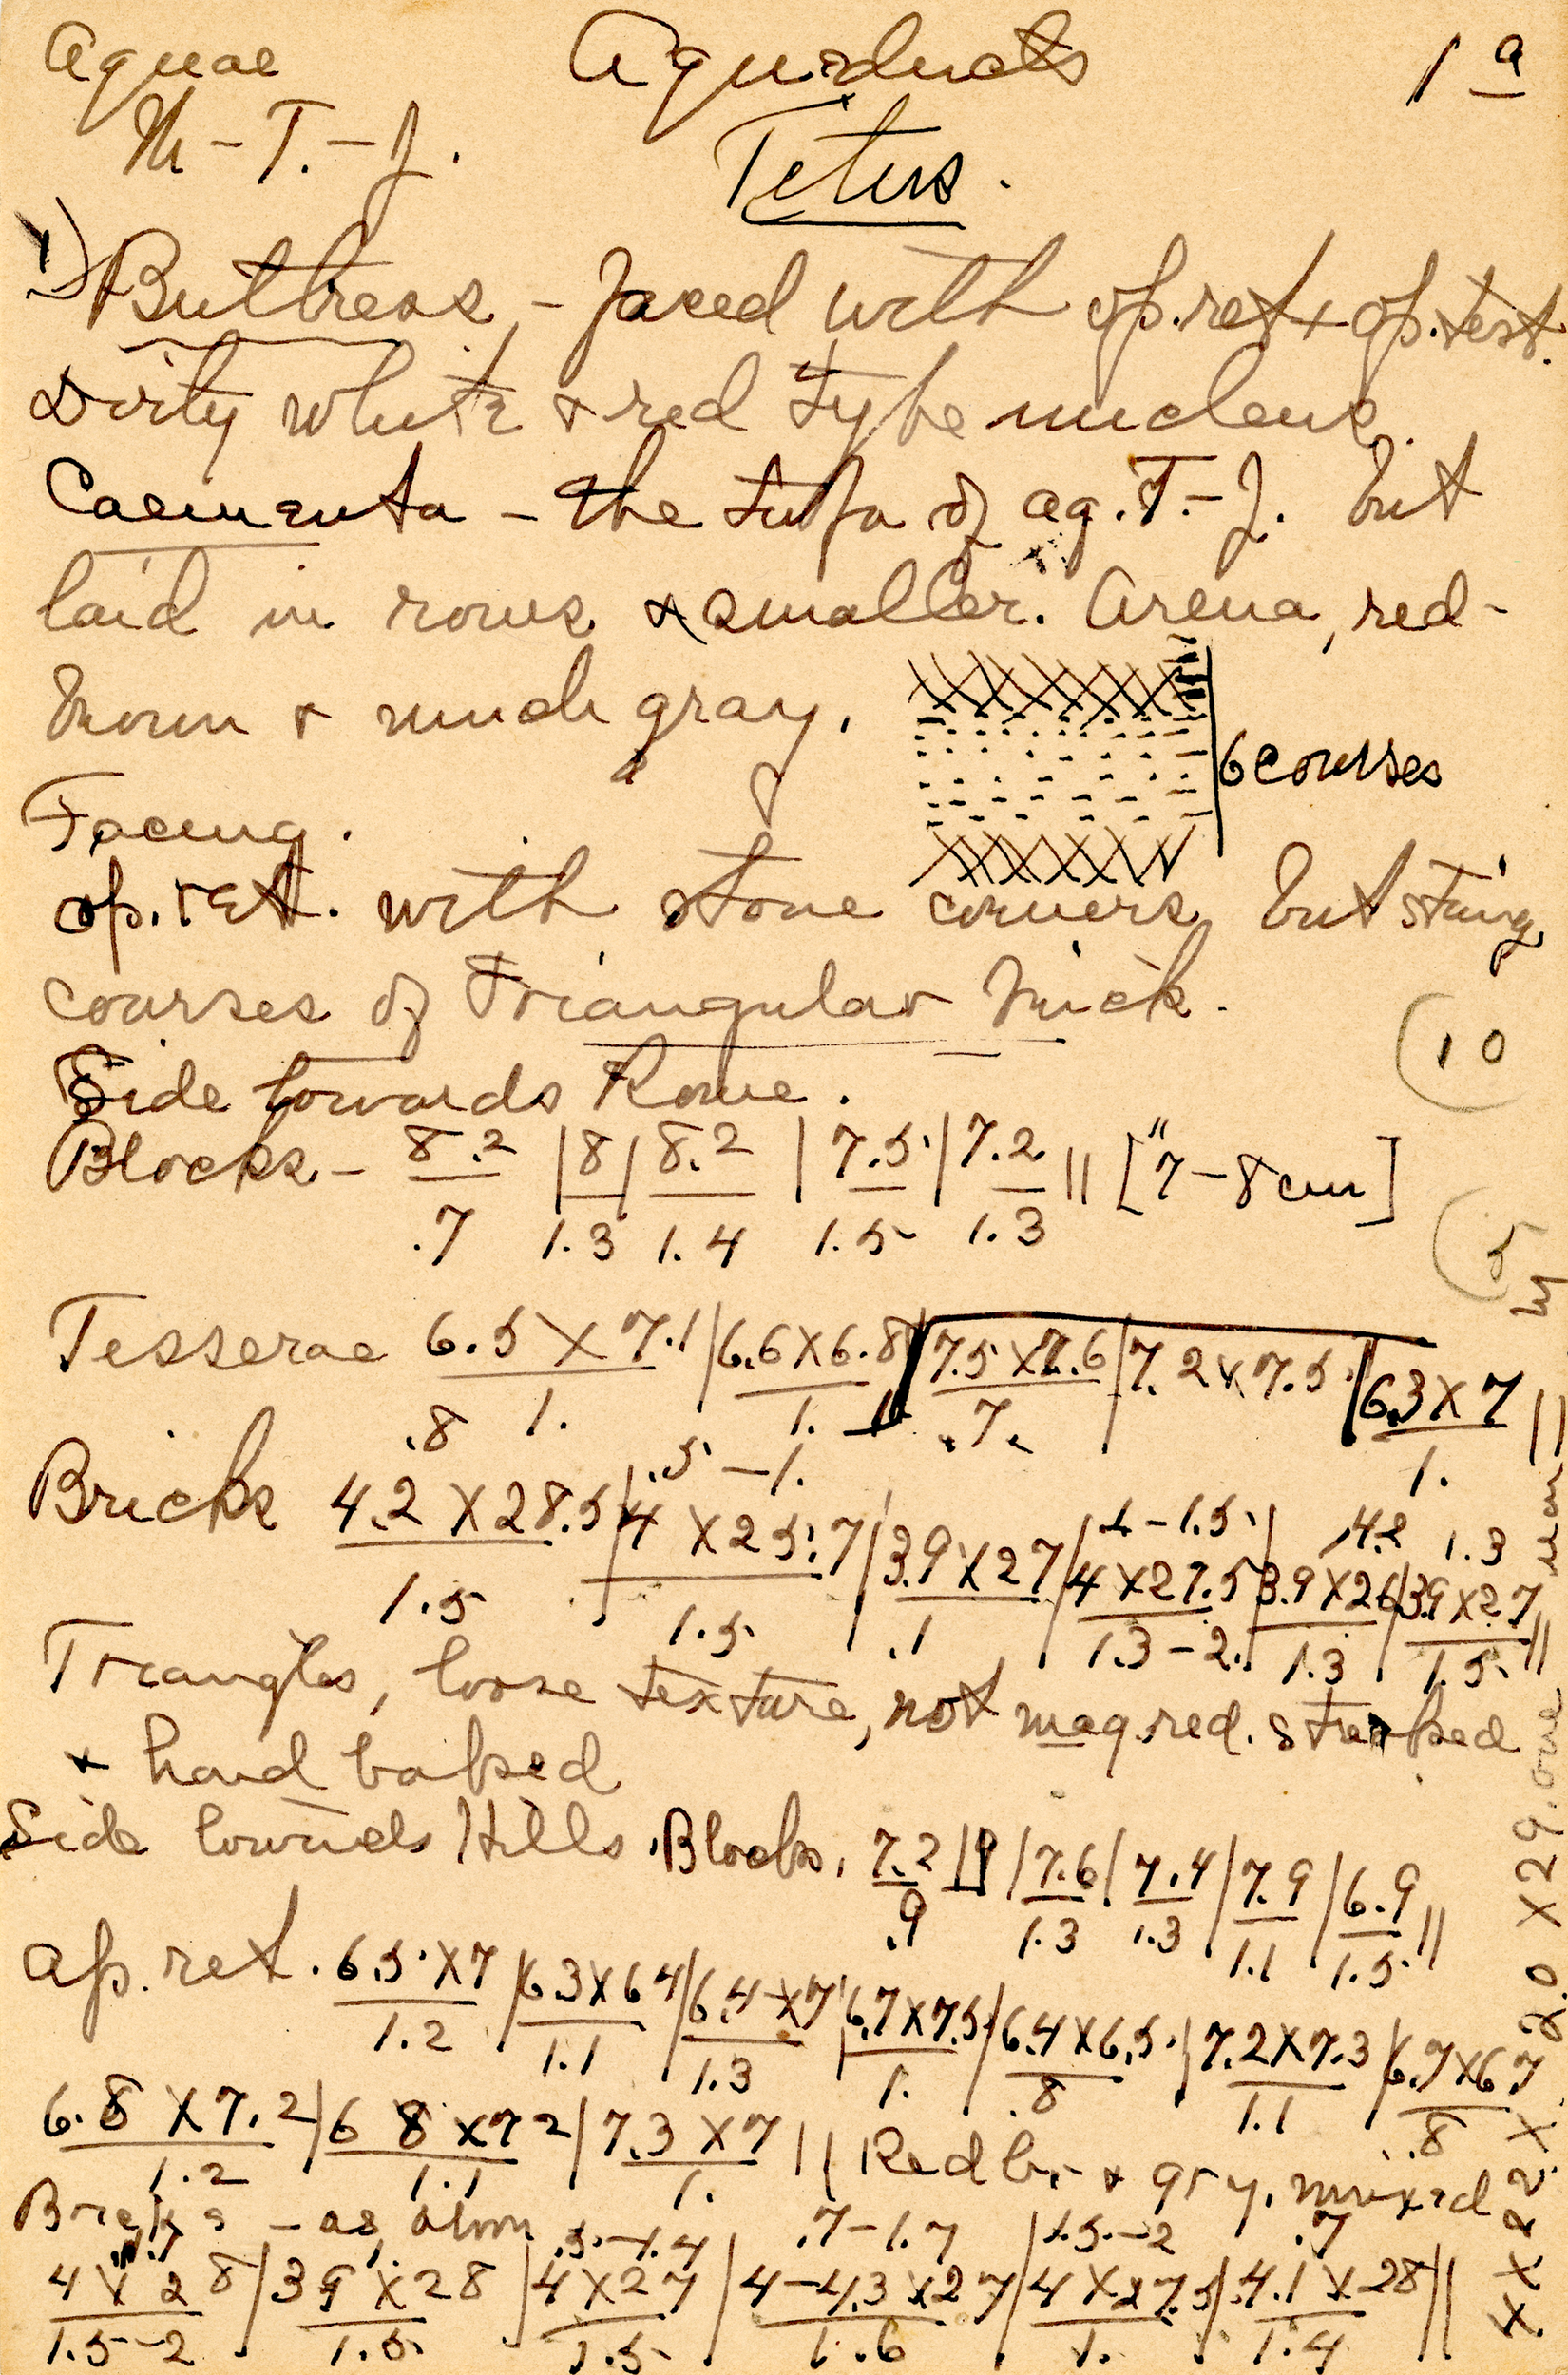 Aquae Aqueducts 1 a
M-T.-J. Tetus.
1) Buttress, - faced with op.ret + op.test.
Dirty white + red type nucleus.
Caementa - the tufa of aq. T.-J. but
laid in rows + smaller. Arena, red-
brown + much gray.
6 courses
Facing.
op.ret. with stone corners, but string
courses of triangular brick.
(10
Side towards Rome.
Blocks - 8.2/.7 | 8/1.3 | 8.2/1.4 | 7.5/1.5 | 7.2/1.3 || ["7-8cm]
(5
Tesserae 6.5 X 7.1/1. | 6.6 X 6.8/1. | 7.5 X 7.6/.7 | 7.2 x 7.5 | 6.3 X 7/1. ||
.8 .5-1. 1-1.5 4.2 1.3
Bricks 4.2 X 28.5/1.5 | 4 X 25.7/1.5 | 3.9 X 27/.1 | 4 X 27.5/1.3-2. | 3.9 X 26/1.3 | 3.9 X 27/1.5 ||
Triangles, loose texture, not mag.red. streaked
+ hard baked
Side towards Hills. Blocks. 7.2/.9 | 7.6/1.3 | 7.4/1.3 | 7.9/1.1 | 6.9/1.5 ||
op. ret. 6.5 X 7/1.2 | 6.3 X 6.4/1.1 | 6.4 X 7/1.3 | 6.7 X 7.5/1. | 6.4 X 6.5/.8 | 7.2 X 7.3/1.1 | 6.7 X 6.7/.8
6.8 X 7.2/1.2 | 6.8 x 7.2/1.1 | 7.3 X 7/1. || Red br. + gry. mixed
Bricks - as above
.7 .5-1.4 .7-1.7 1.5-2 .7
4 X 28/1.5-2 | 3.9 X 28/1.5 | 4 X 27/1.5 | 4-4.3 x 27/1.6 | 4 X 27.5/1. | 4.1 X 28/1.4 ||